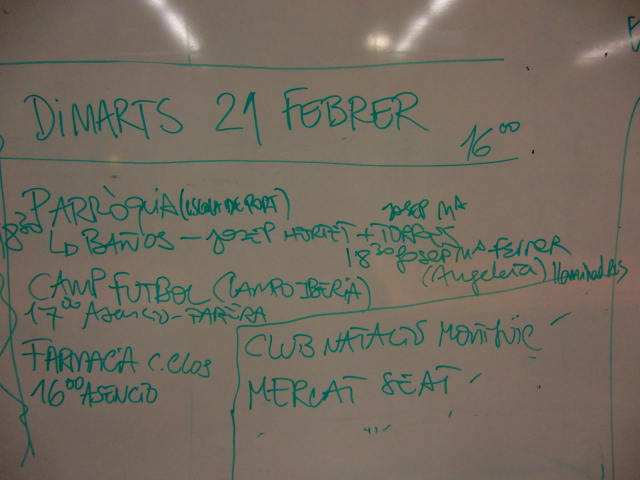 DIMARTS 21 FEBRER
16⁰⁰
PARRÒQUIA (ESCOLA DE PORT)
JOSEP Mª
18³⁰ LD BAÑOS - JOSEP HORTET + TORRUS
18³⁰ Josep Mª Ferrer
(Angeleta)
CAMP FUTBOL (CAMPO IBERIA)
17⁰⁰ ASENCIO - PARERA
FARMACIA C. Clos
16⁰⁰ ASENCIO
CLUB NATACIÓ MONTJUÏC
MERCAT SEAT